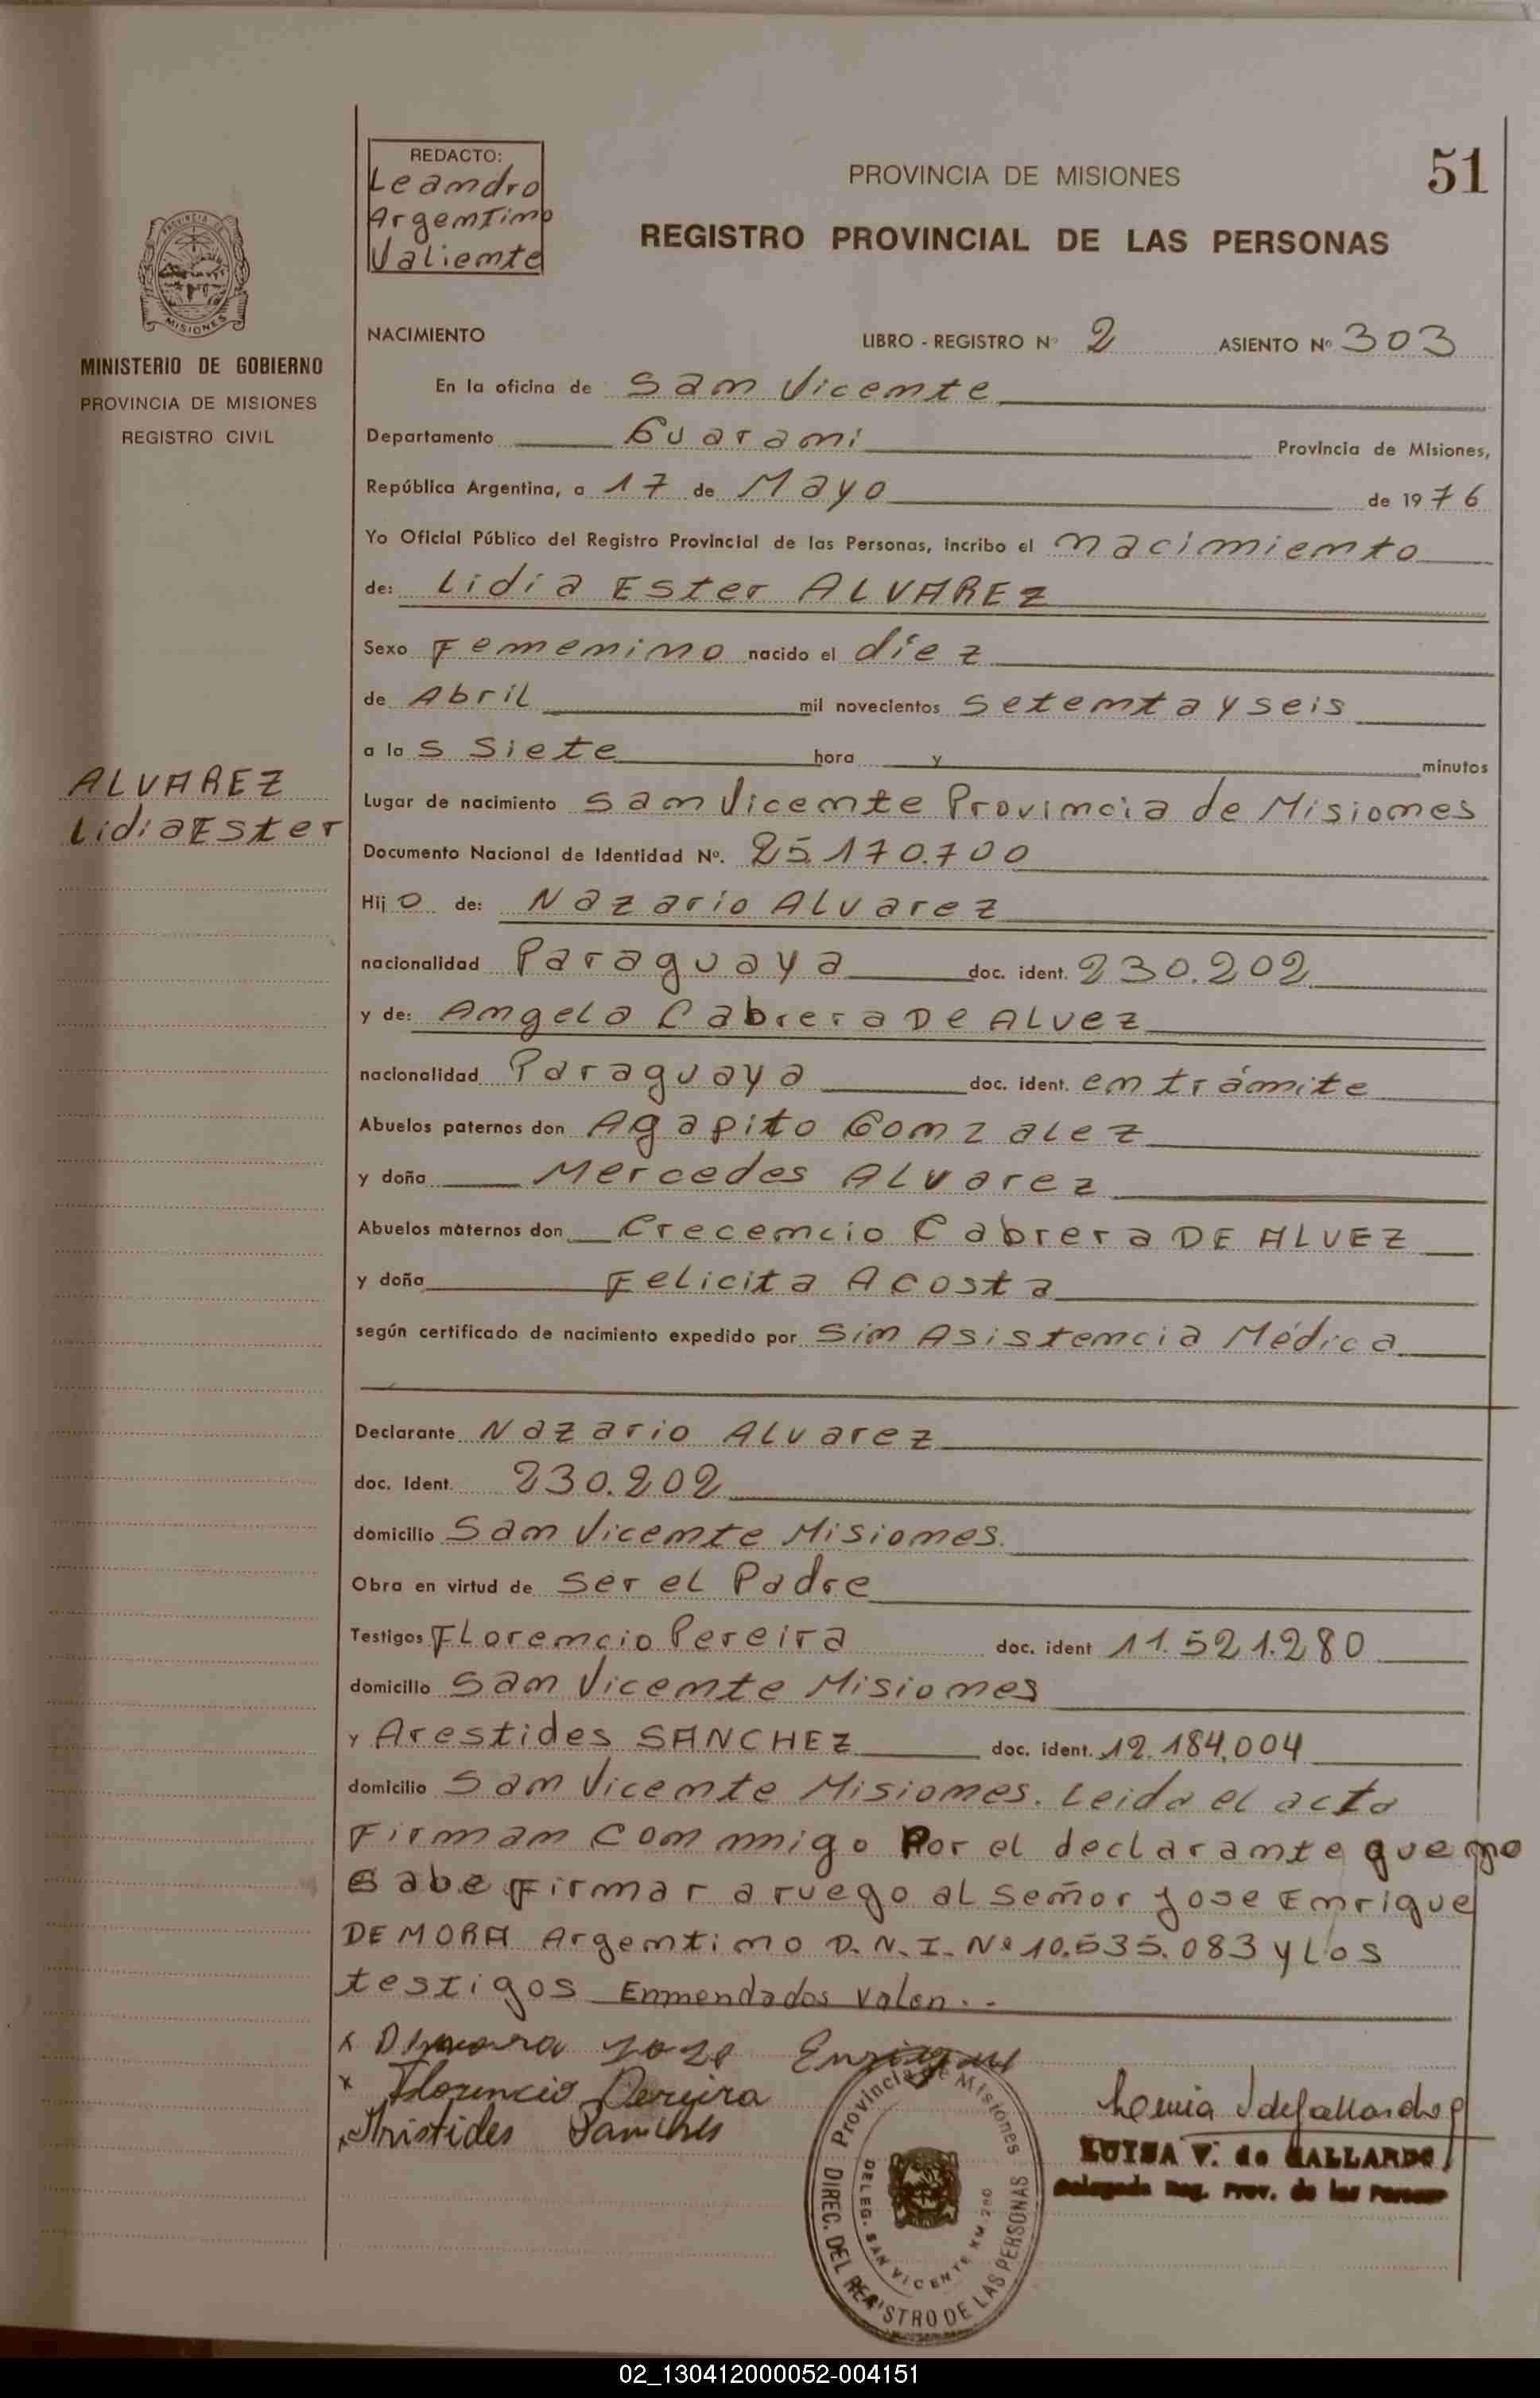 REDACTO:
Leandro
Argentino
Valiente
PROVINCIA DE MISIONES
51
REGISTRO PROVINCIAL DE LAS PERSONAS
PROVINCIA DE
MISIONES
MINISTERIO DE GOBIERNO
PROVINCIA DE MISIONES
REGISTRO CIVIL
NACIMIENTO LIBRO - REGISTRO Nº 2 ASIENTO Nº 303
En la oficina de San Vicente
Departamento Guarani Provincia de Misiones,
República Argentina, a 17 de Mayo de 1976
Yo Oficial Público del Registro Provincial de las Personas, incribo el nacimiento
de: Lidia Ester ALVAREZ
Sexo Femenino nacido el diez
de Abril mil novecientos setenta y seis
a las Siete hora y minutos
ALVAREZ
Lidia Ester
Lugar de nacimiento San Vicente Provincia de Misiones
Documento Nacional de Identidad Nº. 25.170.700
Hijo de: Nazario Alvarez
nacionalidad Paraguaya doc. ident. 230.202
y de: Angela Cabrera De Alvez
nacionalidad Paraguaya doc. ident. en trámite
Abuelos paternos don Agapito Gonzalez
y doña Mercedes Alvarez
Abuelos maternos don Crecencio Cabrera DE ALVEZ
y doña Felicita Acosta
según certificado de nacimiento expedido por Sin Asistencia Médica
Declarante Nazario Alvarez
doc. Ident. 230.202
domicilio San Vicente Misiones.
Obra en virtud de ser el Padre
Testigos Florencio Pereira doc. ident 11.521.280
domicilio San Vicente Misiones
y Arestides SANCHEZ doc. ident. 12.184.004
domicilio San Vicente Misiones. Leida el acta
Firman con migo Por el declarante que no
sabe Firmar a ruego al señor Jose Enrique
DE MORA Argentino D.N.I. Nº 10.535.083 y Los
testigos Enmendados Valen.-
x Demora Jose Enrique
x Florencio Pereira
x Aristides Sanches
Provincia de Misiones
DIREC. DEL REGISTRO DE LAS PERSONAS
DELEG. SAN VICENTE KM. 280
LUISA V. de GALLARDO
Delegada Reg. Prov. de las Personas
02_130412000052-004151